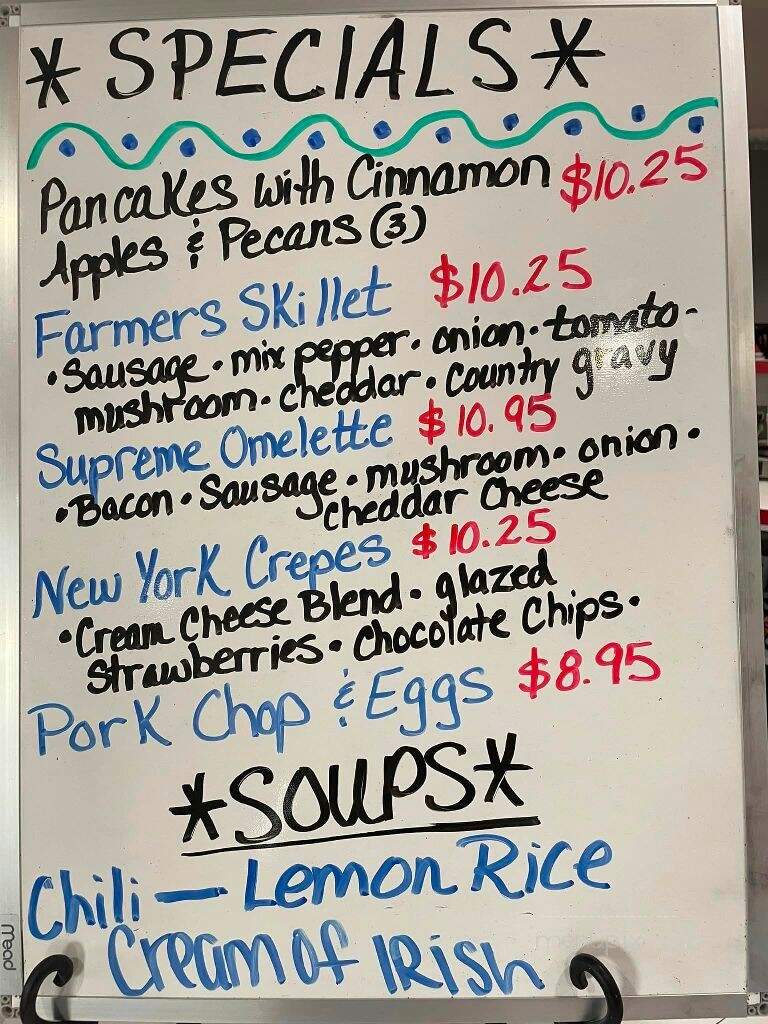 *SPECIALS*
Pancakes with Cinnamon $10.25
Apples & Pecans (3)
Farmers Skillet $10.25
•Sausage • mix pepper • onion • tomato-
mushroom • cheddar • country gravy
Supreme Omelette $10.95
•Bacon • Sausage • mushroom • onion •
cheddar Cheese
New York Crepes $10.25
•Cream Cheese Blend • glazed
Strawberries • Chocolate Chips•
Pork Chop & Eggs $8.95
*SOUPS*
Chili — Lemon Rice
Cream of IRish
Mead